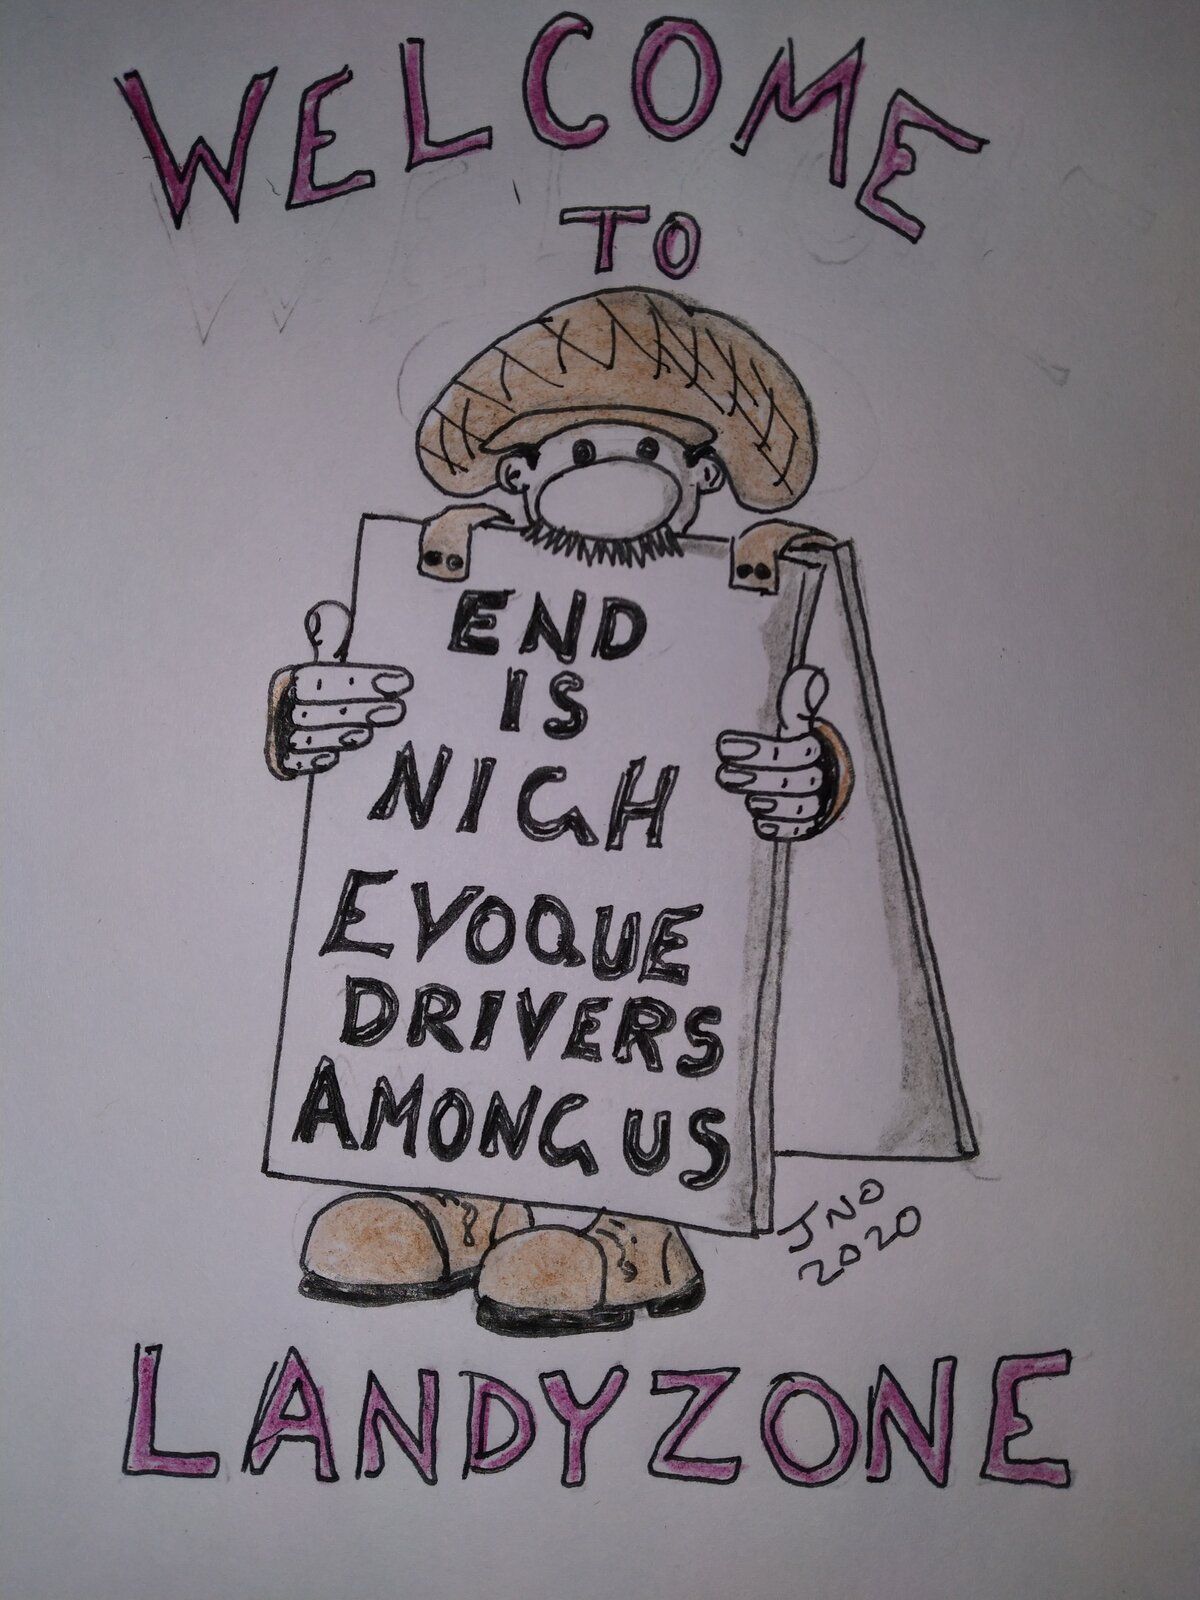 WELCOME
TO
END
IS
NIGH
EVOQUE
DRIVERS
AMONG US
JNO
2020
LANDYZONE